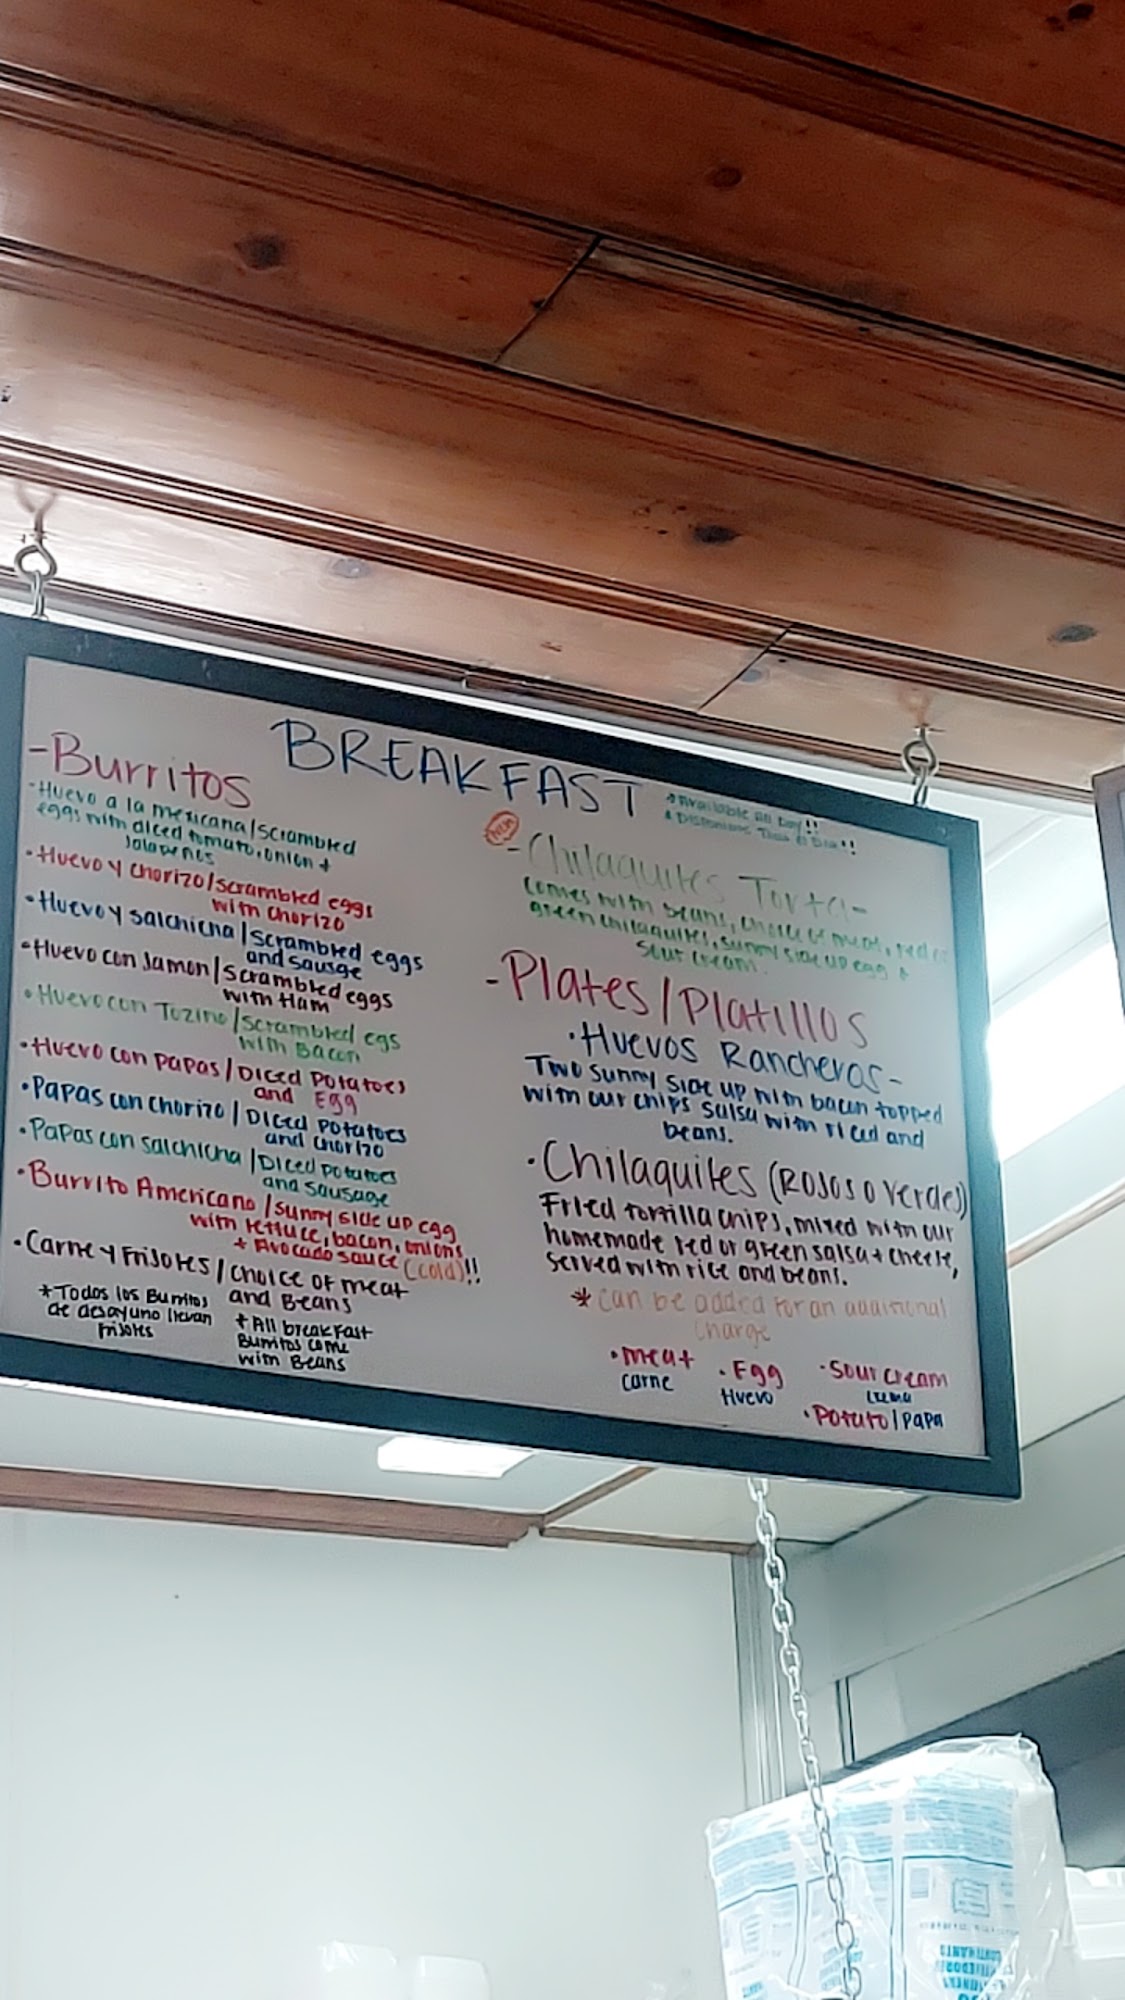 BREAKFAST
-Burritos
·Huevo a la mexicana/scrambled
eggs with diced tomato, onion +
Jalapeños
·Huevo y chorizo/scrambled eggs
with chorizo
·Huevo y salchicha/scrambled eggs
and sausge
·Huevo con Jamon/scrambled eggs
with Ham
·Huevo con Tozino/scrambled egs
with Bacon
·Huevo con papas/Diced potatoes
and Egg
·Papas con chorizo/Diced potatoes
and chorizo
·Papas con salchicha/Diced potatoes
and sausage
·Burrito Americano/sunny side up egg
with lettuce, bacon, onions
+ Avocado sauce (cold)!!
·Carne y Frijoles/choice of meat
and Beans
*Todos los Burritos
de desayuno llevan
frijoles
*All breakfast
Burritos come
with Beans
*Available All Day!!
NEW
-Chilaquiles Torta-
comes with beans, choice of meat, red or
green chilaquiles, sunny side up egg +
sour cream.
-Plates/Platillos
·Huevos Rancheros-
Two sunny side up with bacon topped
with our chips salsa with rice and
beans.
·Chilaquiles (Rojos o Verdes)
Fried tortilla chips, mixed with our
homemade red or green salsa + cheese,
served with rice and beans.
*can be added for an additional
charge
·meat
carne
·Egg
Huevo
·sour cream
crema
·Potato/papa